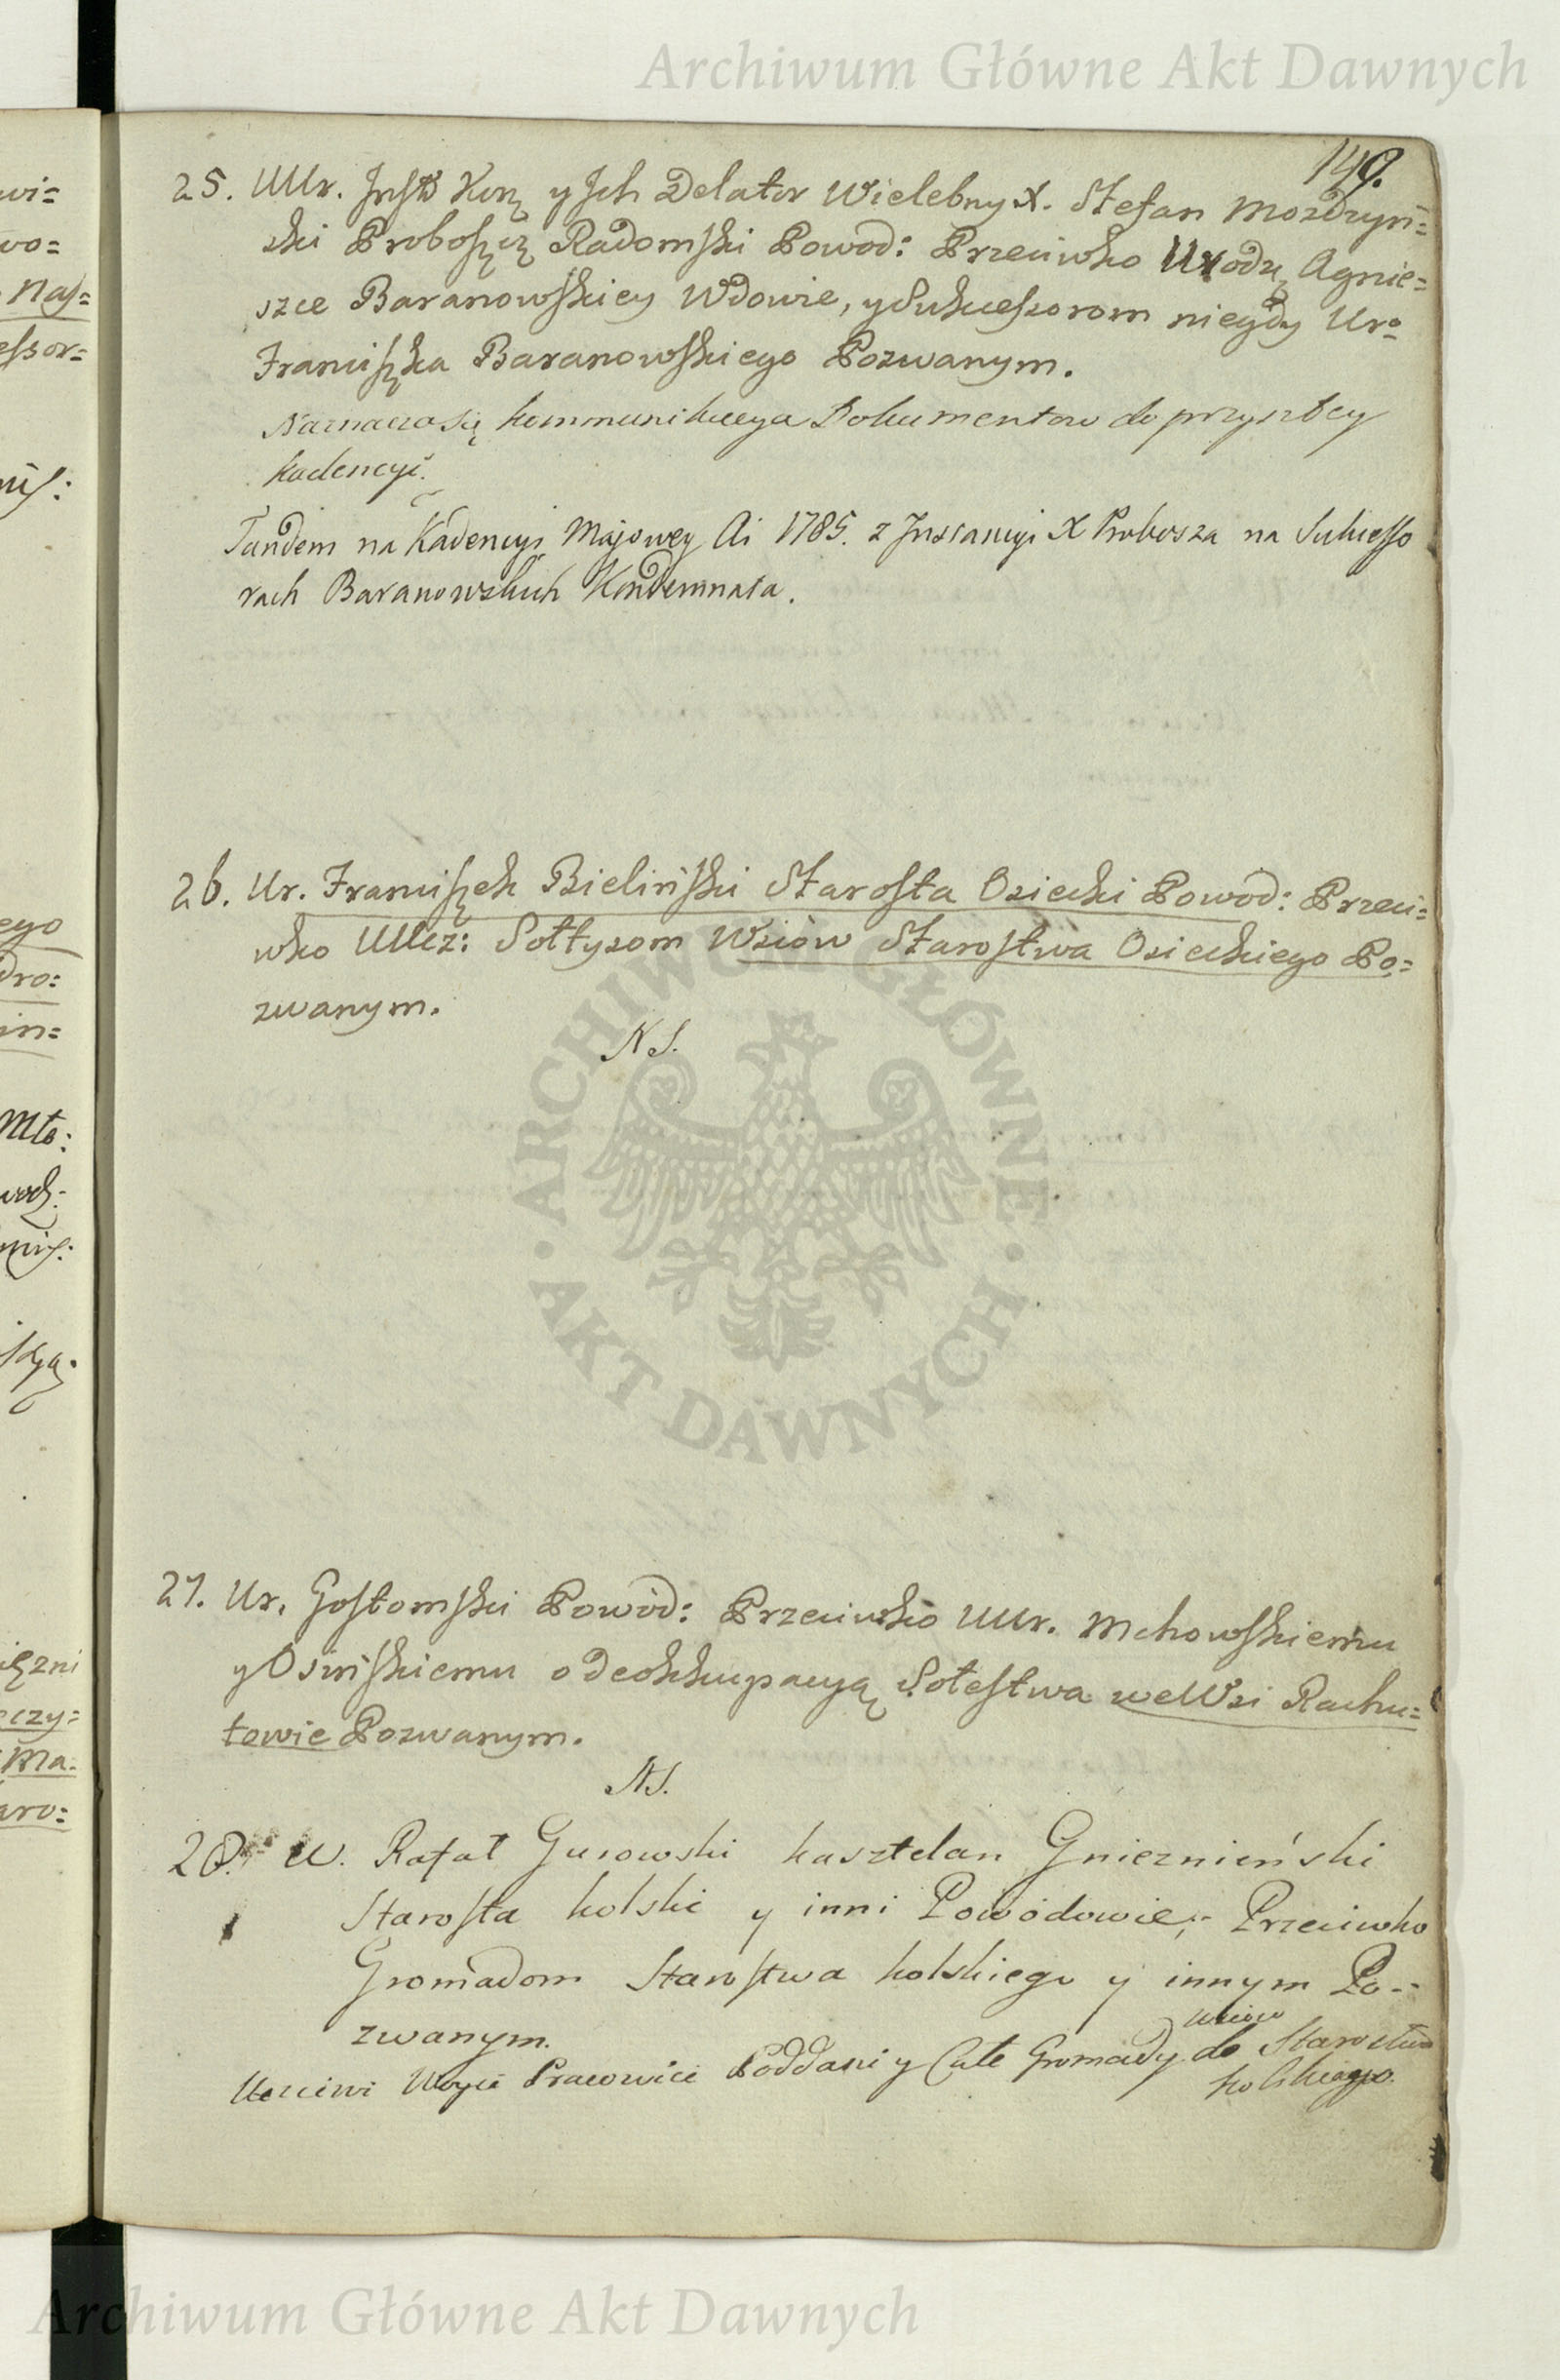 Archiwum Główne Akt Dawnych
149.
25. UUr. Jnst Kor y Jch Delator Wielebny X. Stefan Mozdzyń=
ski Proboszcz Radomski Powod: Przeciwko Urodz Agnie=
szce Baranowskiey Wdowie, y Sukcessorom niegdy Uro
Franciszka Baranowskiego Pozwanym.
Naznacza się kommunikacya Dokumentow do przyszłey
kadencyi.
Tandem na Kadencyi Majowey Ai 1785. z Jnstancyi X Probosza na Sukcesso
rach Baranowskich Kondemnata.
26. Ur. Franciszek Bieliński Starosta Osiecki Powod: Przeci=
wko UUcz: Sołtysom Wsiow Starostwa Osieckiego Po=
zwanym.
NS.
ARCHIWUM GŁÓWNE • AKT DAWNYCH •
27. Ur. Gostomski Powod: Przeciwko UUr. Mchowskiemu
y Osinskiemu o Deokkupacyą Sołestwa we Wsi Rachu=
towie Pozwanym.
NS.
28. W. Rafał Gurowski kasztelan Gnieznieński
Starosta kolski y inni Powodowie, Przeciwko
Gromadom Starostwa kolskiego y innym Po=
zwanym.
Ucciwi Woyci Pracowici Poddani y Całe Gromady wsiow do Starostwa
kolskiego.
Archiwum Główne Akt Dawnych